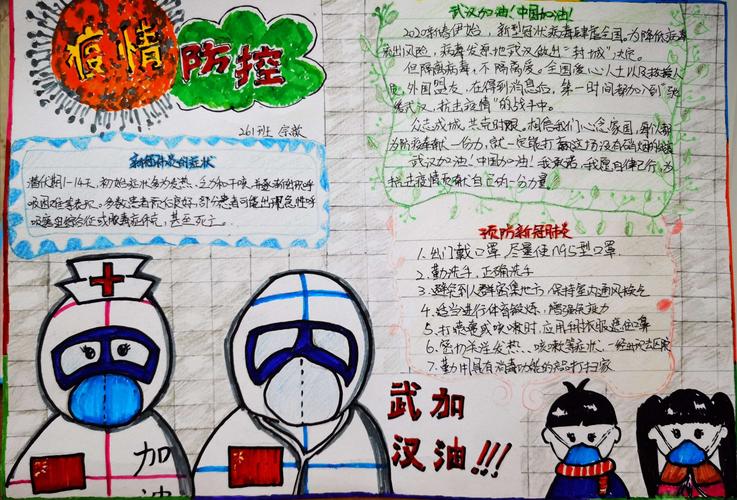 疫情防控
261班 宗
新冠肺炎的症状
潜伏期1-14天,初始症状多为发热、乏力和干咳,并逐渐出现呼
吸困难等表现。多数患者预后良好,部分患者可能出现急性呼
吸窘迫综合征或脓毒症休克,甚至死亡。
武汉加油!中国加油!
2020新春伊始,新型冠状病毒肆虐全国。为降低病毒
风险,病毒发源地武汉做出“封城”决定。
但隔离病毒,不隔离爱。全国爱心人士以及
外国盟友,在得到消息后,第一时间都加入到“
武汉,抗击疫情”的战斗中。
众志成城,共克时艰。相信我们心念家国,
为防疫奉献一份力,就一定能打赢这场没有硝烟的
武汉加油!中国加油!我承诺,我愿自律己行,为
抗击疫情贡献自己的一份力量
预防新冠肺炎
1.出门戴口罩,尽量使N95型口罩.
2.勤洗手,正确洗手
3.避免到人群密集地方,保持室内通风换气
4.适当进行体育锻炼,增强抵抗力
5.打喷嚏或咳嗽时,应用
6.密切关注发热、咳嗽等症状,一经出现去医院
7.勤用具有消毒功能的
加油
武汉加油!!!